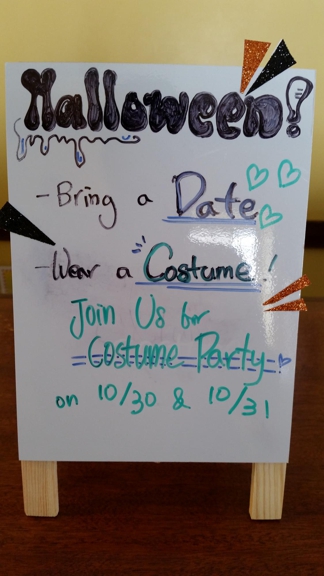 Halloween!
- Bring a Date
- Wear a Costume!
Join Us for
Costume Party!
on 10/30 & 10/31